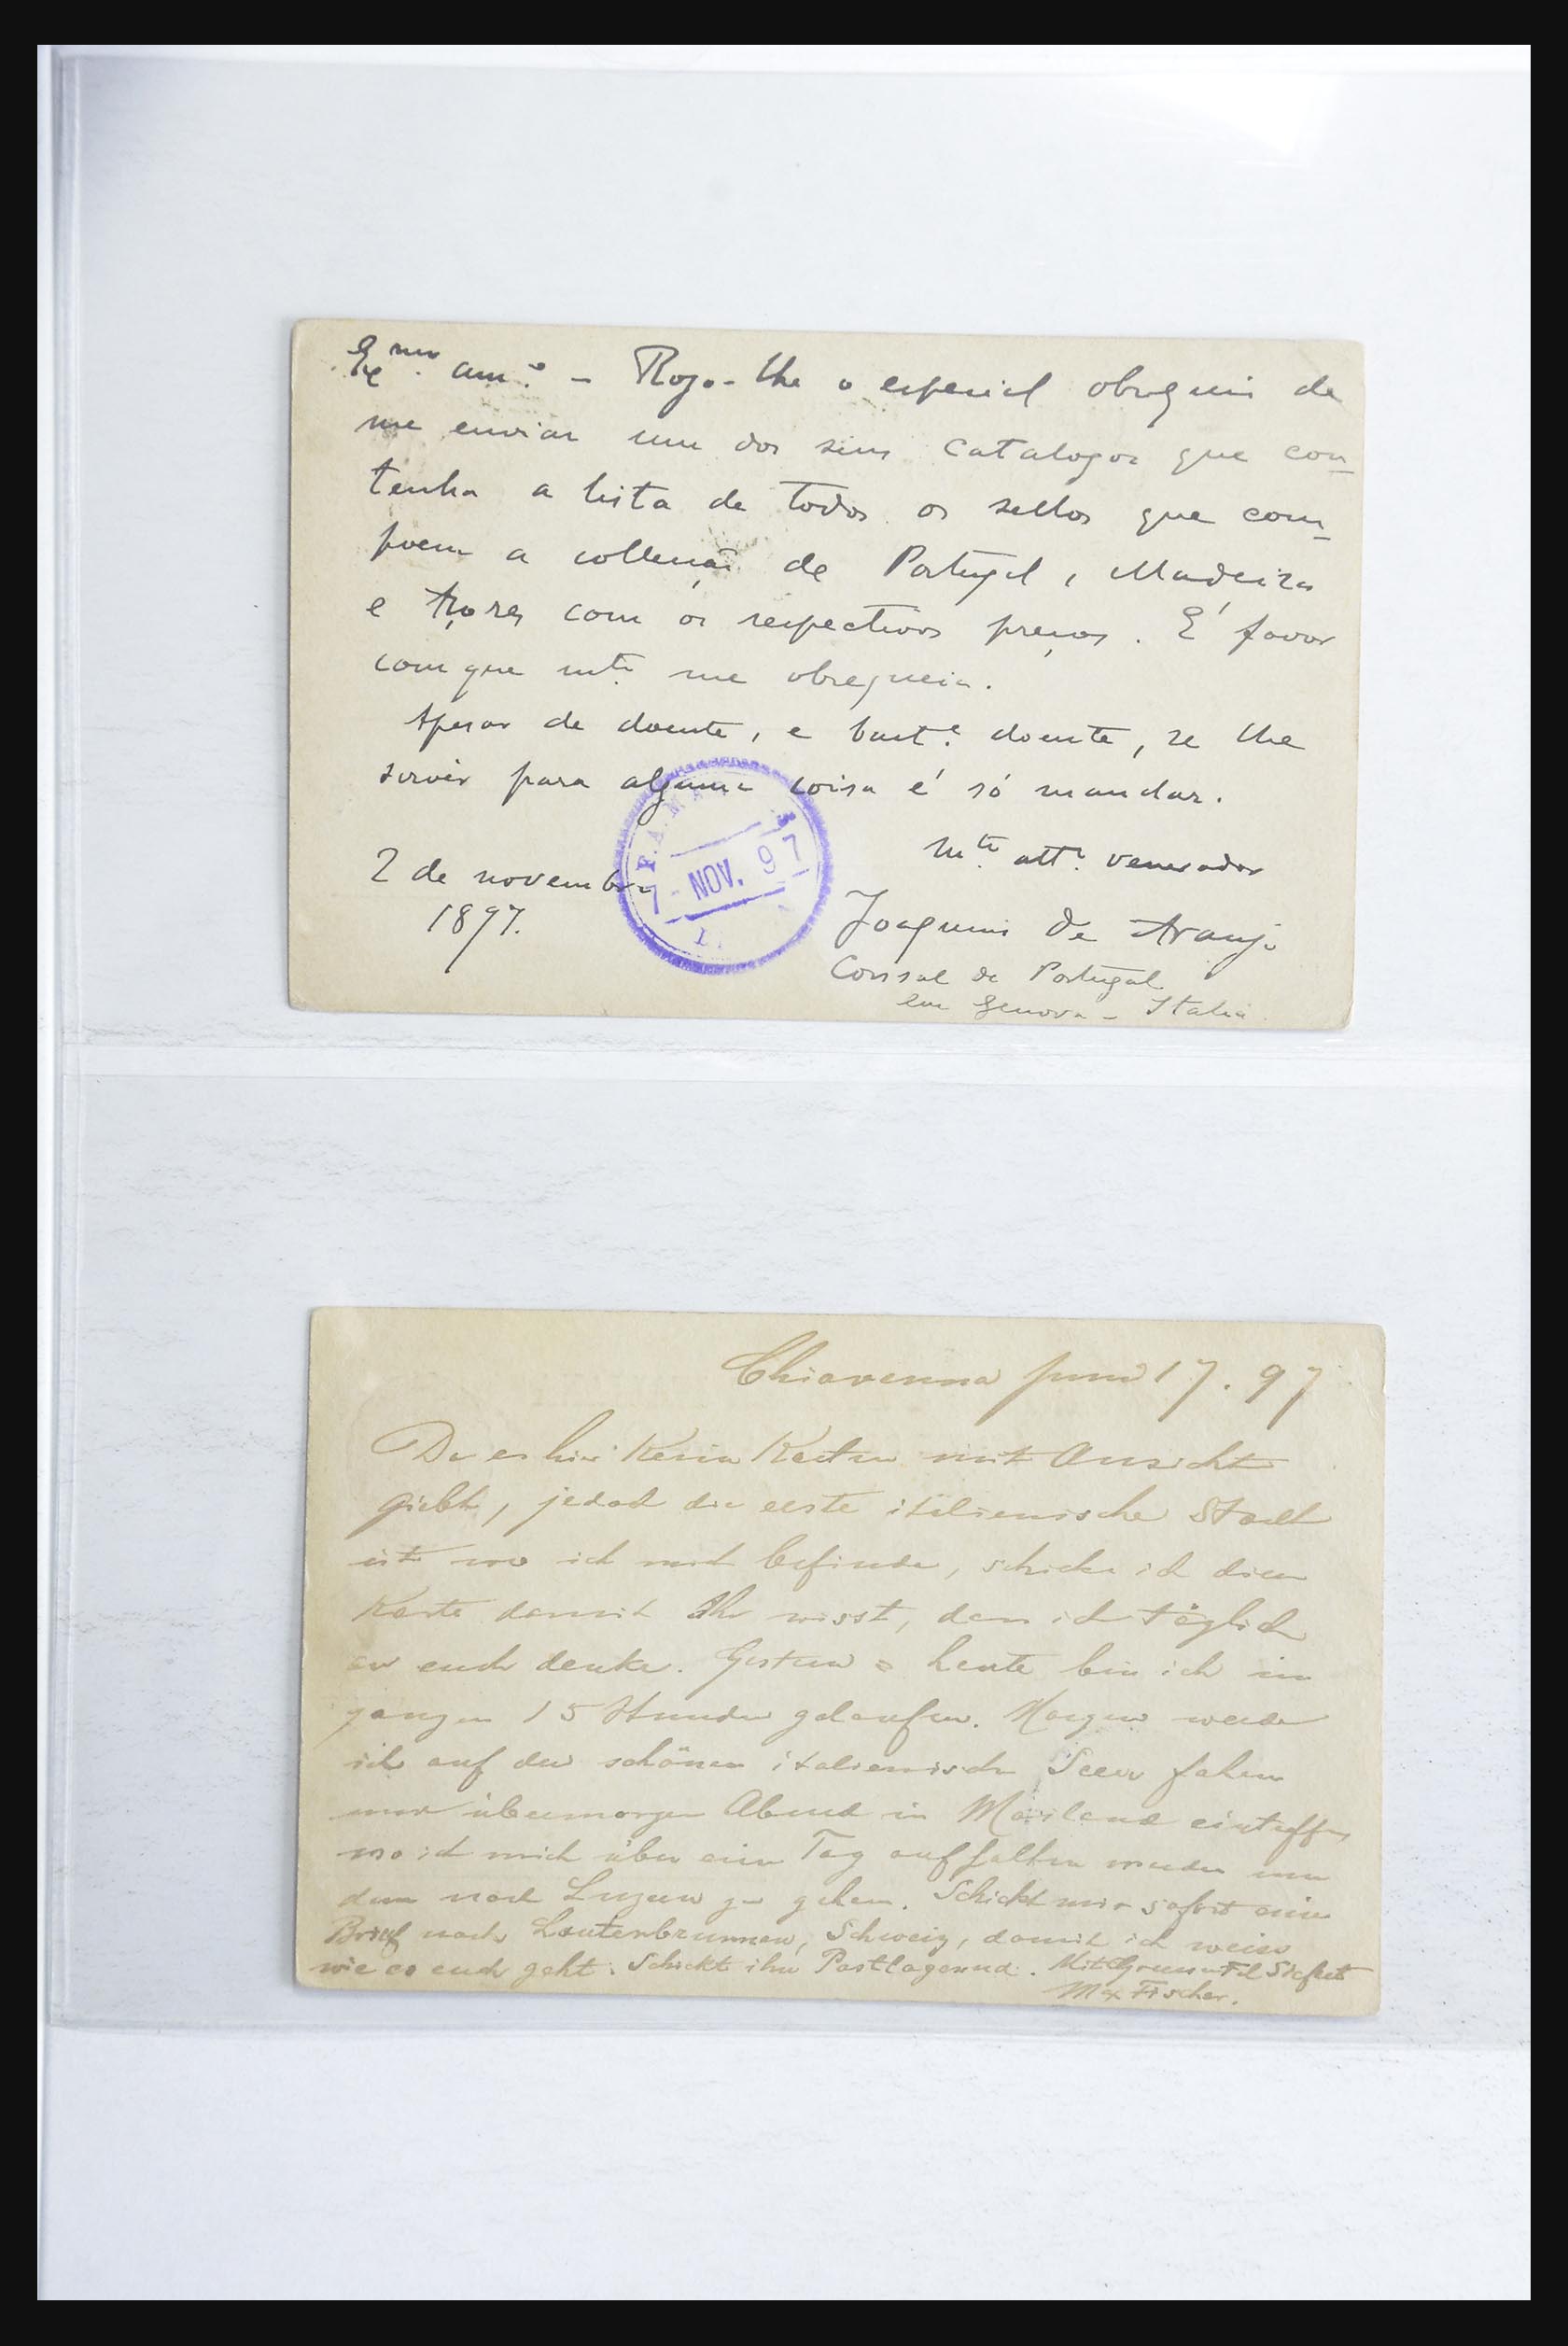 Exmo. amo. - Rogo-lhe o especial obsequio de
me enviar um dos seus catalogos que con-
tenha a lista de todos os sellos que com-
poem a collecção de Portugal, Madeira
e Açores com os respectivos preços. É favor
com que mto. me obsequeia.
Apesar de doente, e bast.e doente, se lhe
servir para alguma coisa é só mandar.
Mto. att.o venerador
2 de novembro
1897.
7 NOV. 97
Joaquim de Araujo
Consul de Portugal
em Genova - Italia
Chiavenna Juni 17. 97
Da es hier keine Karten mit Ansicht
giebt, jedoch die erste italienische Stadt
ist wo ich mich befinde, schicke ich diese
Karte damit Ihr wisst, dass ich täglich
an euch denke. Gestern & heute bin ich im
ganzen 15 Stunden gelaufen. Morgen werde
ich auf den schönen italienischen Seen fahren
und übermorgen Abend in Mailand eintreffen
wo ich mich über einen Tag aufhalten werde um
dann nach Luzern zu gehen. Schickt mir sofort einen
Brief nach Lauterbrunnen, Schweiz, damit ich weiss
wie es euch geht. Schickt ihn Postlagernd. Mit Grüssen
Max Fischer.